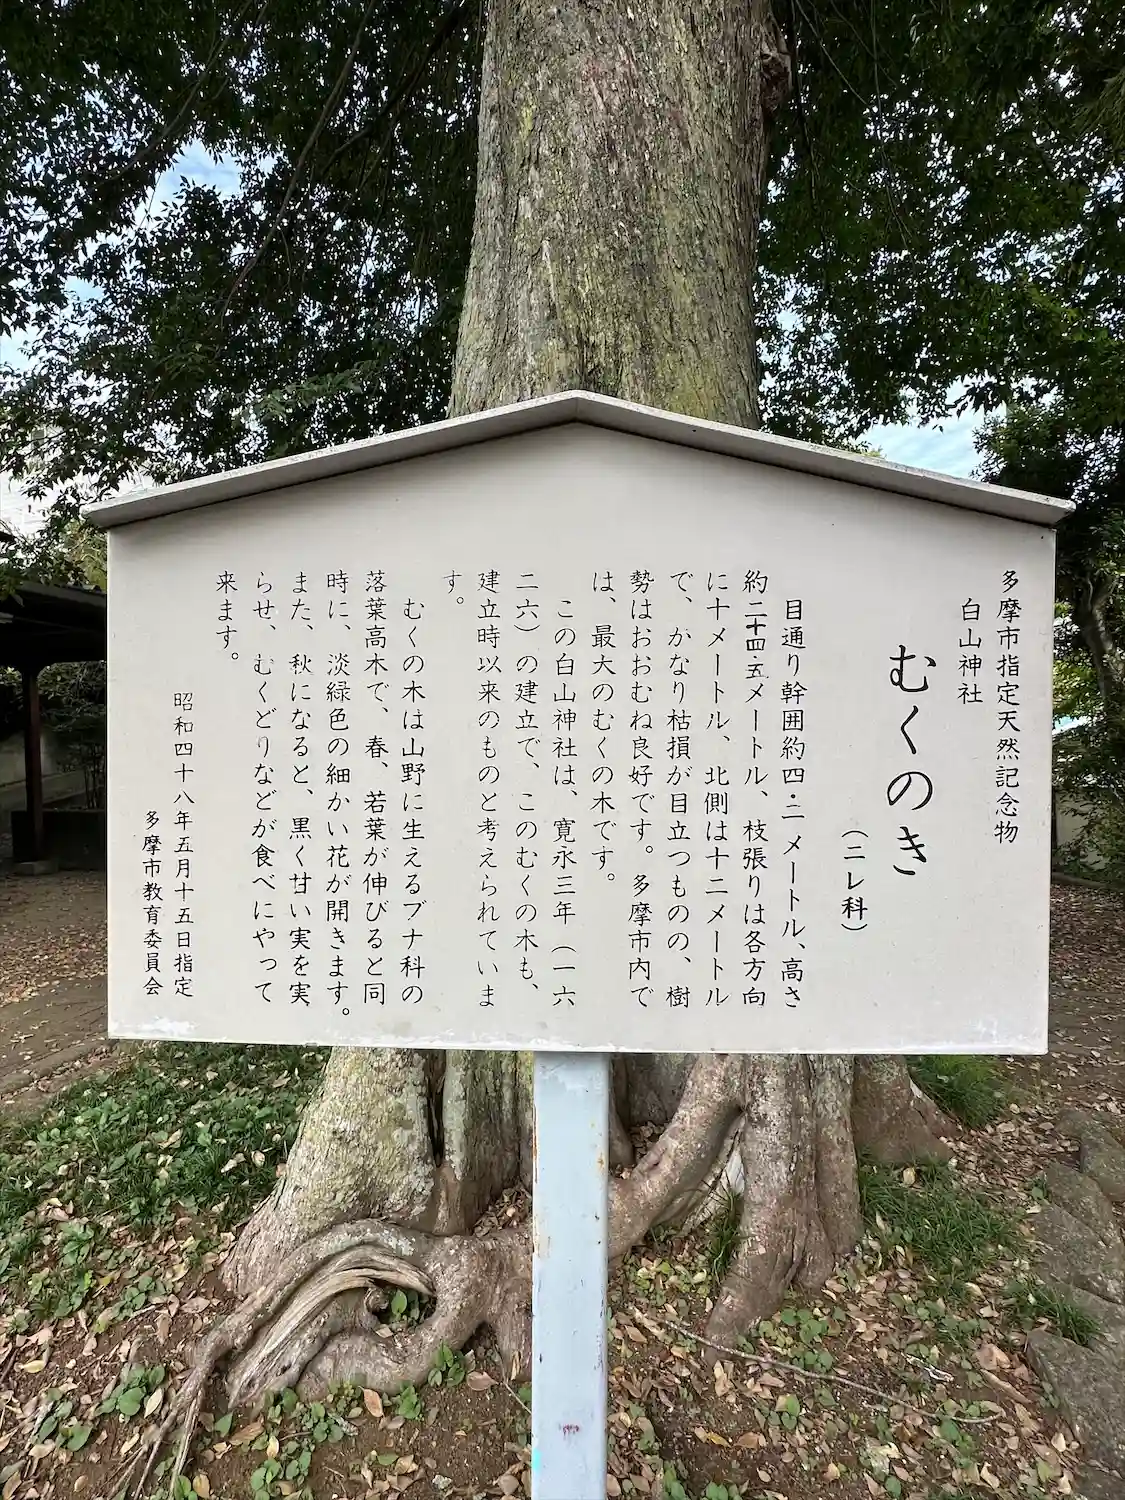 多摩市指定天然記念物
白山神社
むくのき
(ニレ科)
目通り幹囲約四・二メートル、高さ
約二十四・五メートル、枝張りは各方向
に十メートル、北側は十二メートル
で、かなり枯損が目立つものの、樹
勢はおおむね良好です。多摩市内で
は、最大のむくの木です。
この白山神社は、寛永三年(一六
二六)の建立で、このむくの木も、
建立時以来のものと考えられていま
す。
むくの木は山野に生えるブナ科の
落葉高木で、春、若葉が伸びると同
時に、淡緑色の細かい花が開きます。
また、秋になると、黒く甘い実を実
らせ、むくどりなどが食べにやって
来ます。
昭和四十八年五月十五日指定
多摩市教育委員会